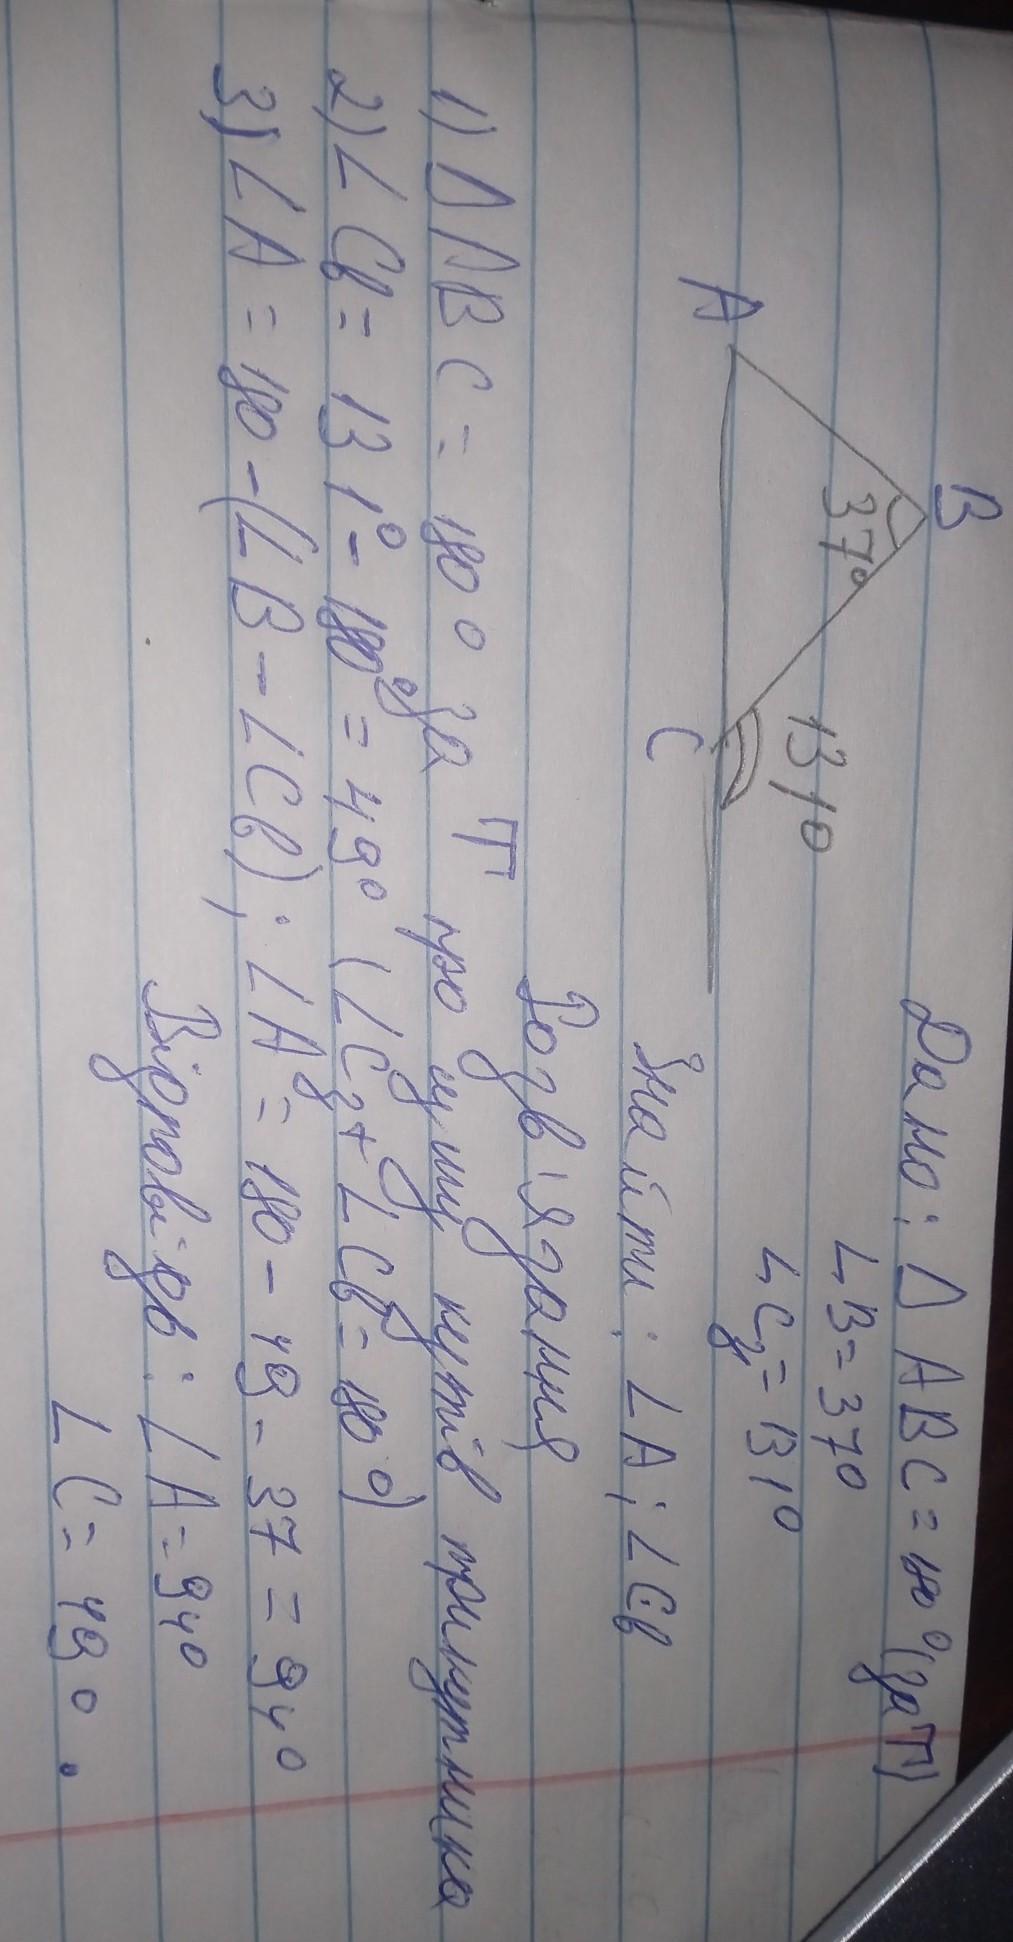 Дано: Δ ABC = 180° (за Т)
∠B = 37°
∠Cз = 131°
B
37°
131°
A
C
Знайти: ∠A; ∠Cв
Розв'язання
1) Δ ABC = 180° за Т про суму кутів трикутника
2) ∠Cв = 131° - 180° = 49° (∠Cз + ∠Cв = 180°)
3) ∠A = 180 - (∠B - ∠Cв); ∠A = 180 - 49 - 37 = 94°
Відповідь: ∠A = 94°
∠C = 49°.